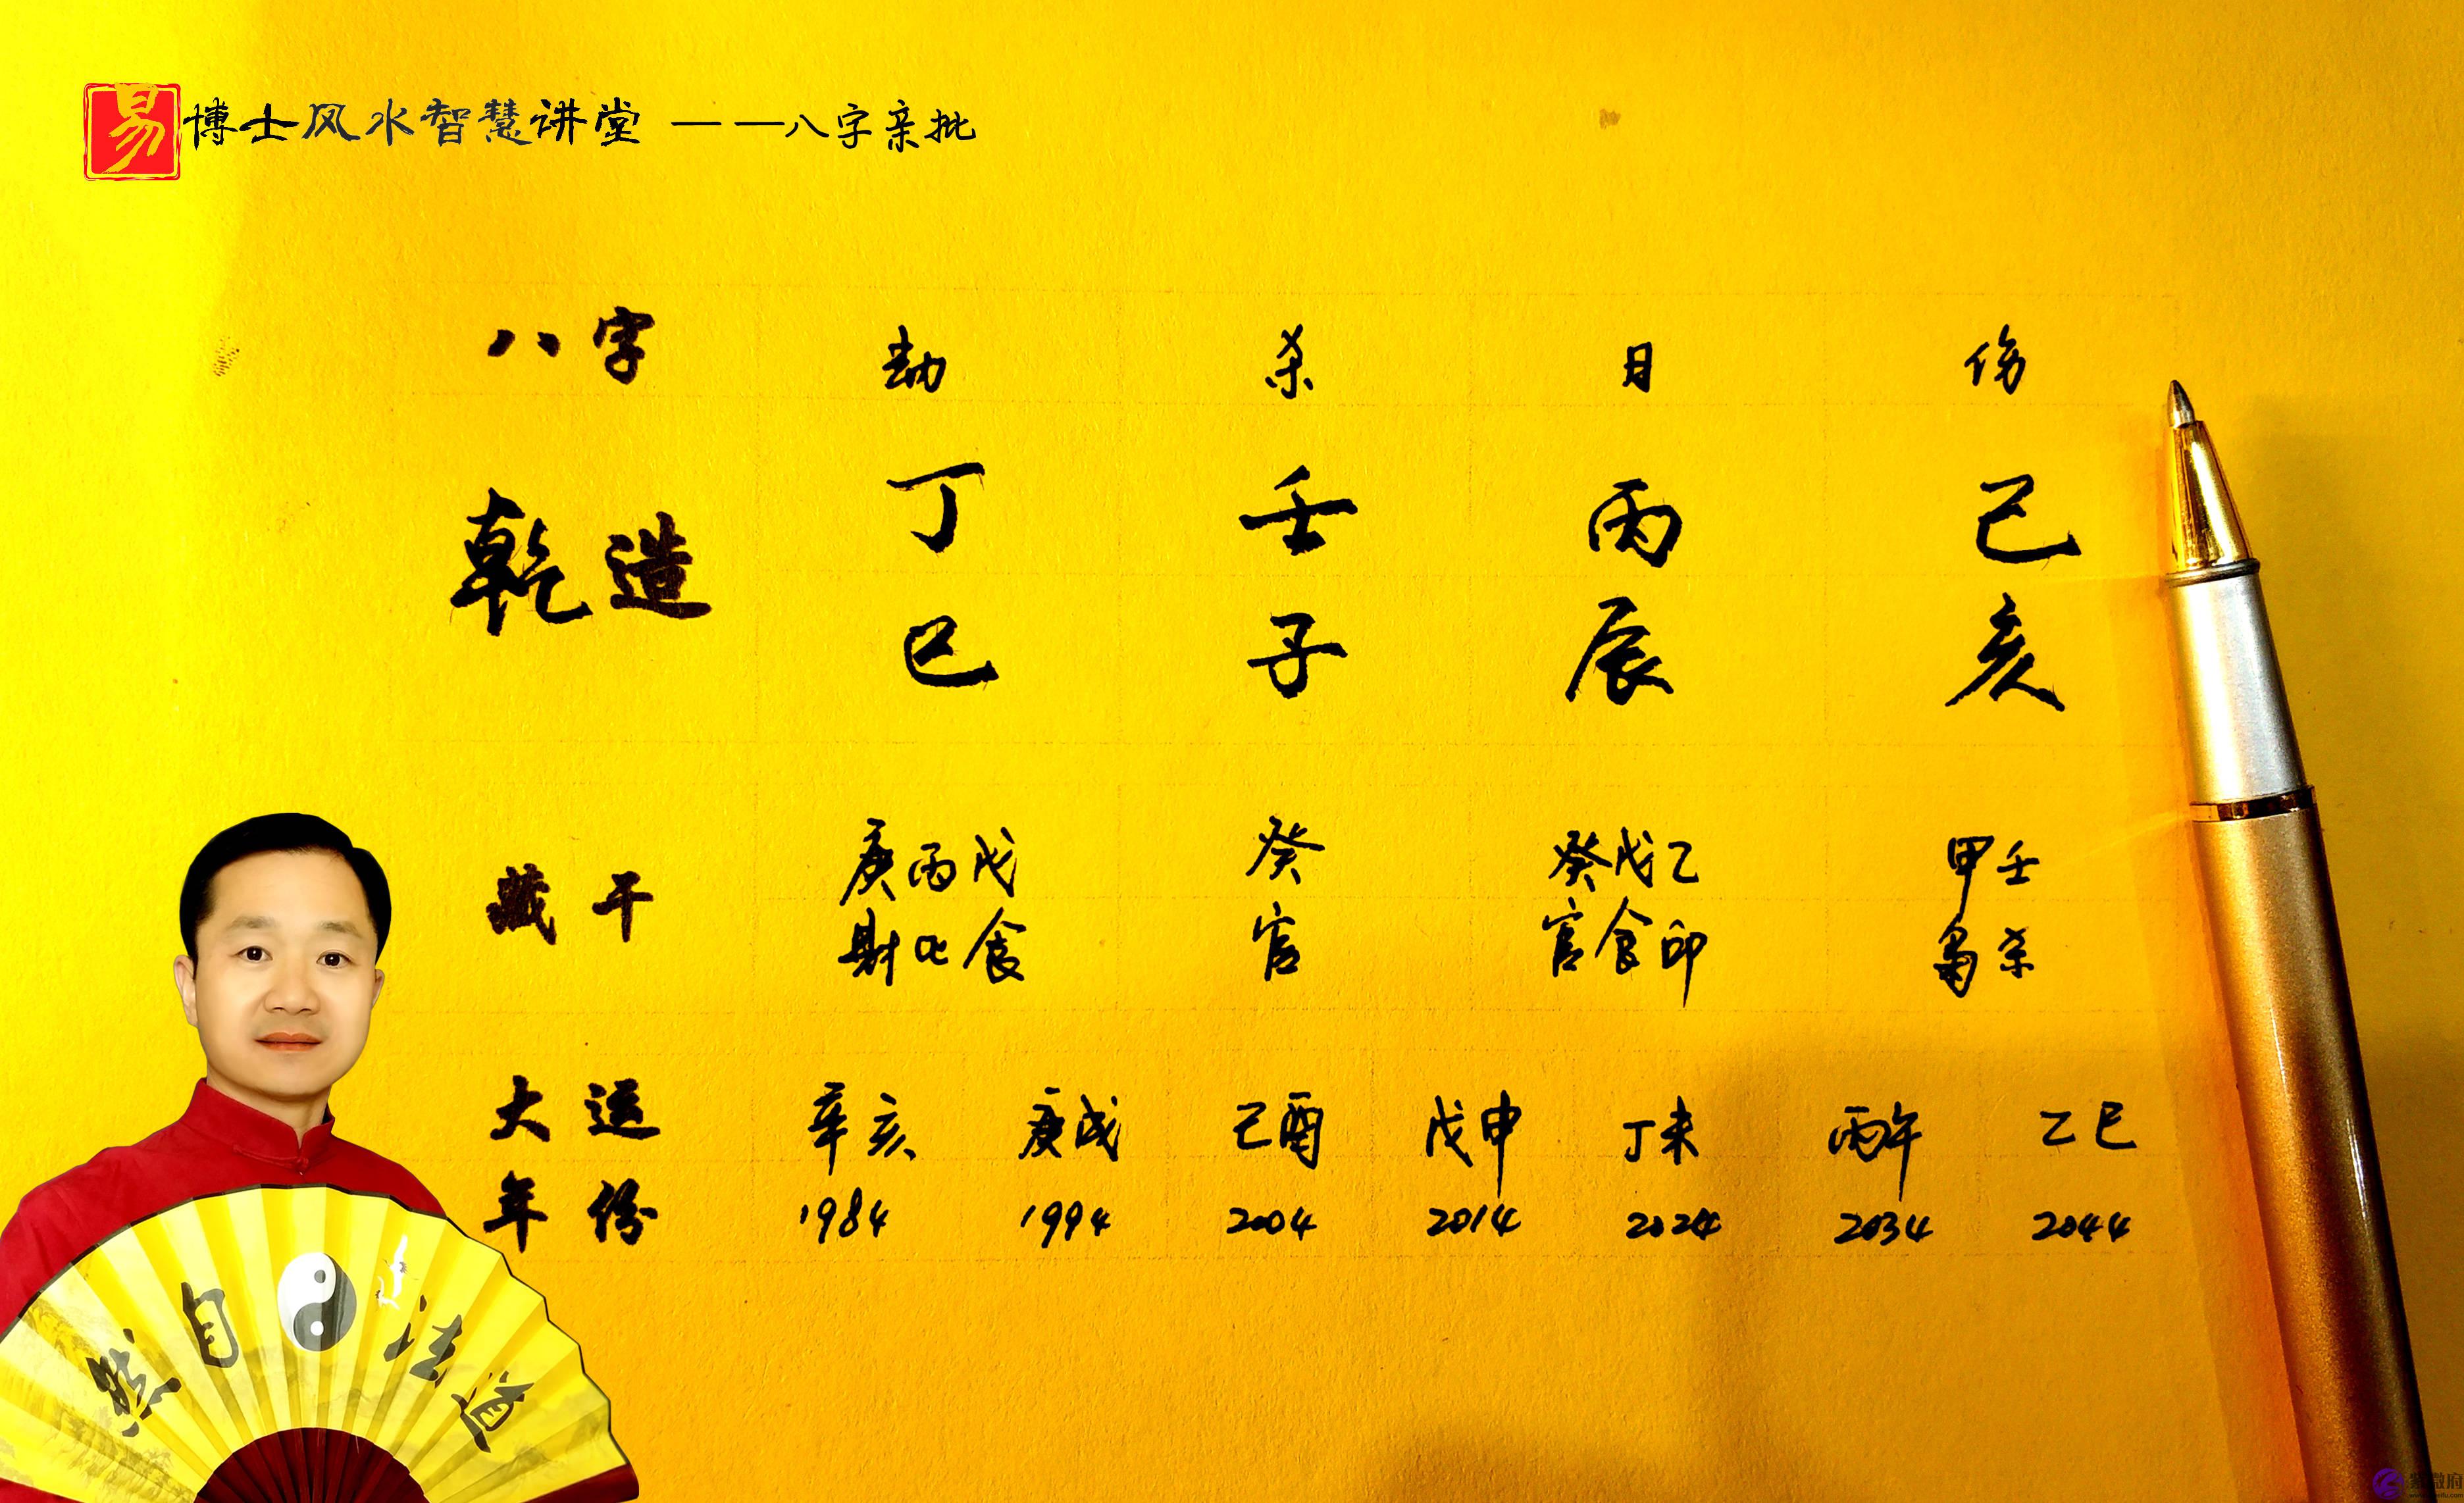 易博士风水智慧讲堂 ——八字亲批
八字 劫 杀 日 伤
乾造 丁 壬 丙 己
巳 子 辰 亥
藏干 庚丙戊 癸 癸戊乙 甲壬
财比食 官 官食印 枭杀
大运 辛亥 庚戌 己酉 戊申 丁未 丙午 乙巳
年份 1984 1994 2004 2014 2024 2034 2044
然自法道
微府